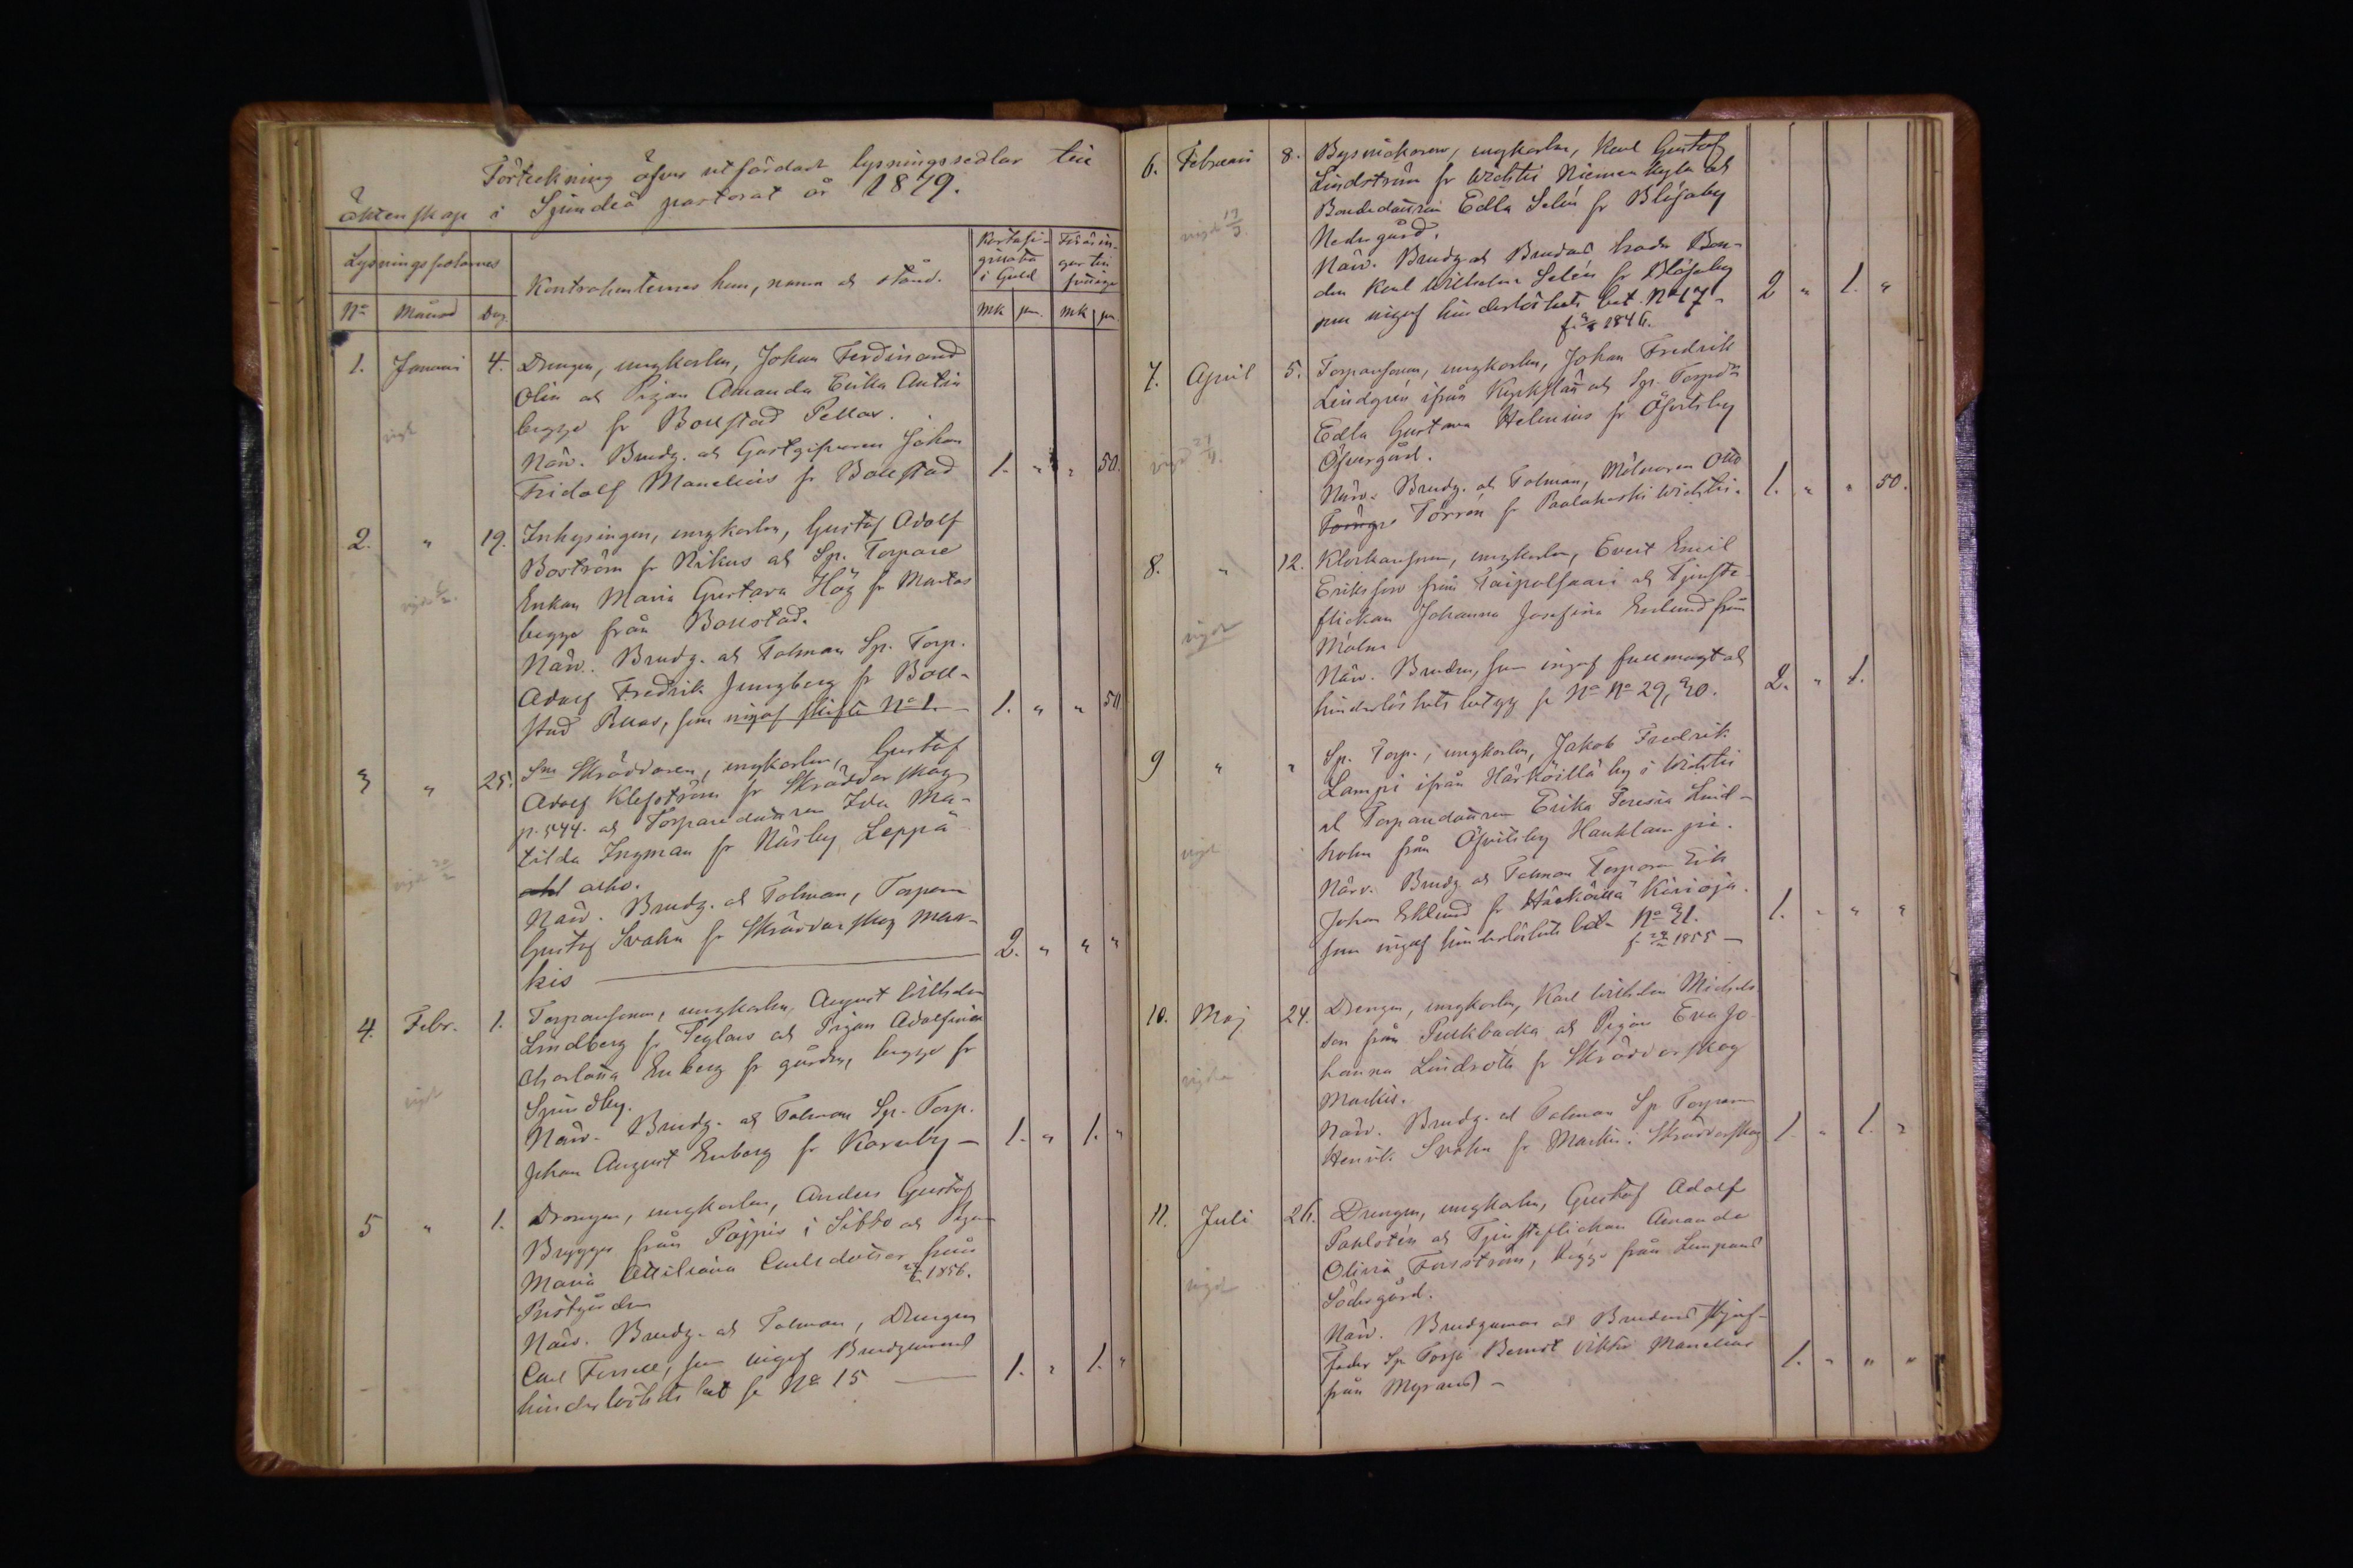 Förteckning öfver utfärdade lysningssedlar till
äktenskap i Sjundeå pastorat år 1879.
Lysningssedlarnes
Kontrahenternas hem, namn och stånd.
i Guld
No Månad Dag. Mk pn. Mk pn.
1. Januari 4. Drengen, ungkarlen, Johan Ferdinand
Olin och Pigan Amanda Erika Antin
begge fr Bollstad Pellas.
vigde
Närv. Brudg. och Gästgifvaren Johan
Fridolf Manelius fr Bollstad 1. " " 50.
2. " 19. Inhysingen, ungkarlen, Gustaf Adolf
Boström fr Nikus och Sp. Torpare
Enkan Maria Gustava Hög fr Martas
begge från Bollstad.
Närv. Brudg. och Talman Sp. Torp.
Adolf Fredrik Ljungberg fr Boll-
stad Pellas, som ingaf skifte No 1. 1. " " 50
3 " 25. Skräddaren, ungkarlen, Gustaf
Adolf Klefström fr Skräddarskog
p. 544. och Torparedottren Ida Ma-
tilda Ingman fr Näsby Leppä
aho.
Närv. Brudg. och Talman, Torparen
Gustaf Svahn fr Skräddarskog Mar-
kis 2. " " "
4. Febr. 1. Torparesonen, ungkarlen, August Wilhelm
Lindberg fr Teglars och Pigan Adolfina
Charlotta Enberg fr gården, begge fr
Sjundby.
Närv. Brudg. och Talman Sp. Torp.
Johan August Enberg fr Karuby 1. " 1. "
5 " 1. Drengen, ungkarlen, Anders Gustaf
Brygger från Pajpis i Sibbo och Pigan
Maria Ottiliana Carlsdotter från
1856.
Prestgården
Närv. Brudg. och Talman, Drengen
Carl Forsell, som ingaf Brudgummens
hinderlöshets bet se No 15 1. " 1. "
6. Februari 8. Bysnickaren, ungkarlen, Karl Gustaf
Lindström fr Wichtis Niemenkylä och
Bondedottren Edla Selén fr Blåsaby
Nedergård.
Närv. Brudg. och Brudens broder Bon-
den Karl Wilhelm Selén fr Blåsaby
som ingaf hinderlöshets bet. No 17 2 " 1. "
1846.
7. April 5. Torparesonen, ungkarlen, Johan Fredrik
Lindgrén ifrån Kyrkslätt och Sp. Torpd
Edla Gustava Helenius fr Öfvitsby
Öfvergård.
Närv. Brudg. och Talman, Mölnaren Otto
Törrön fr Paalahoski Wichtis. 1. " " 50.
8. " 12. Klockaresonen, ungkarlen, Evert Emil
Eriksson från Taipalsaari och Tjenste-
flickan Johanna Josefina Enlund från
Malm
Närv. Bruden, som ingaf fullmagt och
hinderlöshets betyg se No No 29, 30. 2. " 1.
9 " " Sp. Torp., ungkarlen, Jakob Fredrik
Lampi ifrån Härköillä by i Wichtis
och Torparedottren Erika Teresia Lind-
holm från Öfvitsby Hauklampi.
Närv. Brudg och Talman Torparen Erik
Johan Eklund fr Härköillä Kärioja.
som ingaf hinderlöshets bet No 31. 1. " " "
1855
10. Maj 24. Drengen, ungkarlen, Karl Wilhelm Michels
son från Purkbacka och Pigan Eva Jo-
hanna Lindroth fr Skräddarskog
Markis.
Närv. Brudg. och Talman Sp Torparen
Henrik Svahn fr Markis i Skräddarskog 1. " 1. "
11. Juli 26. Drengen, ungkarlen, Gustaf Adolf
Pahlstén och Tjensteflickan Amanda
Olivia Forsström, begge från Lempans
Södergård.
vigde
Närv. Brudgumman och Brudens styf-
fader Sp Torp Berndt Viktor Manelius
från Myrans 1. " " "